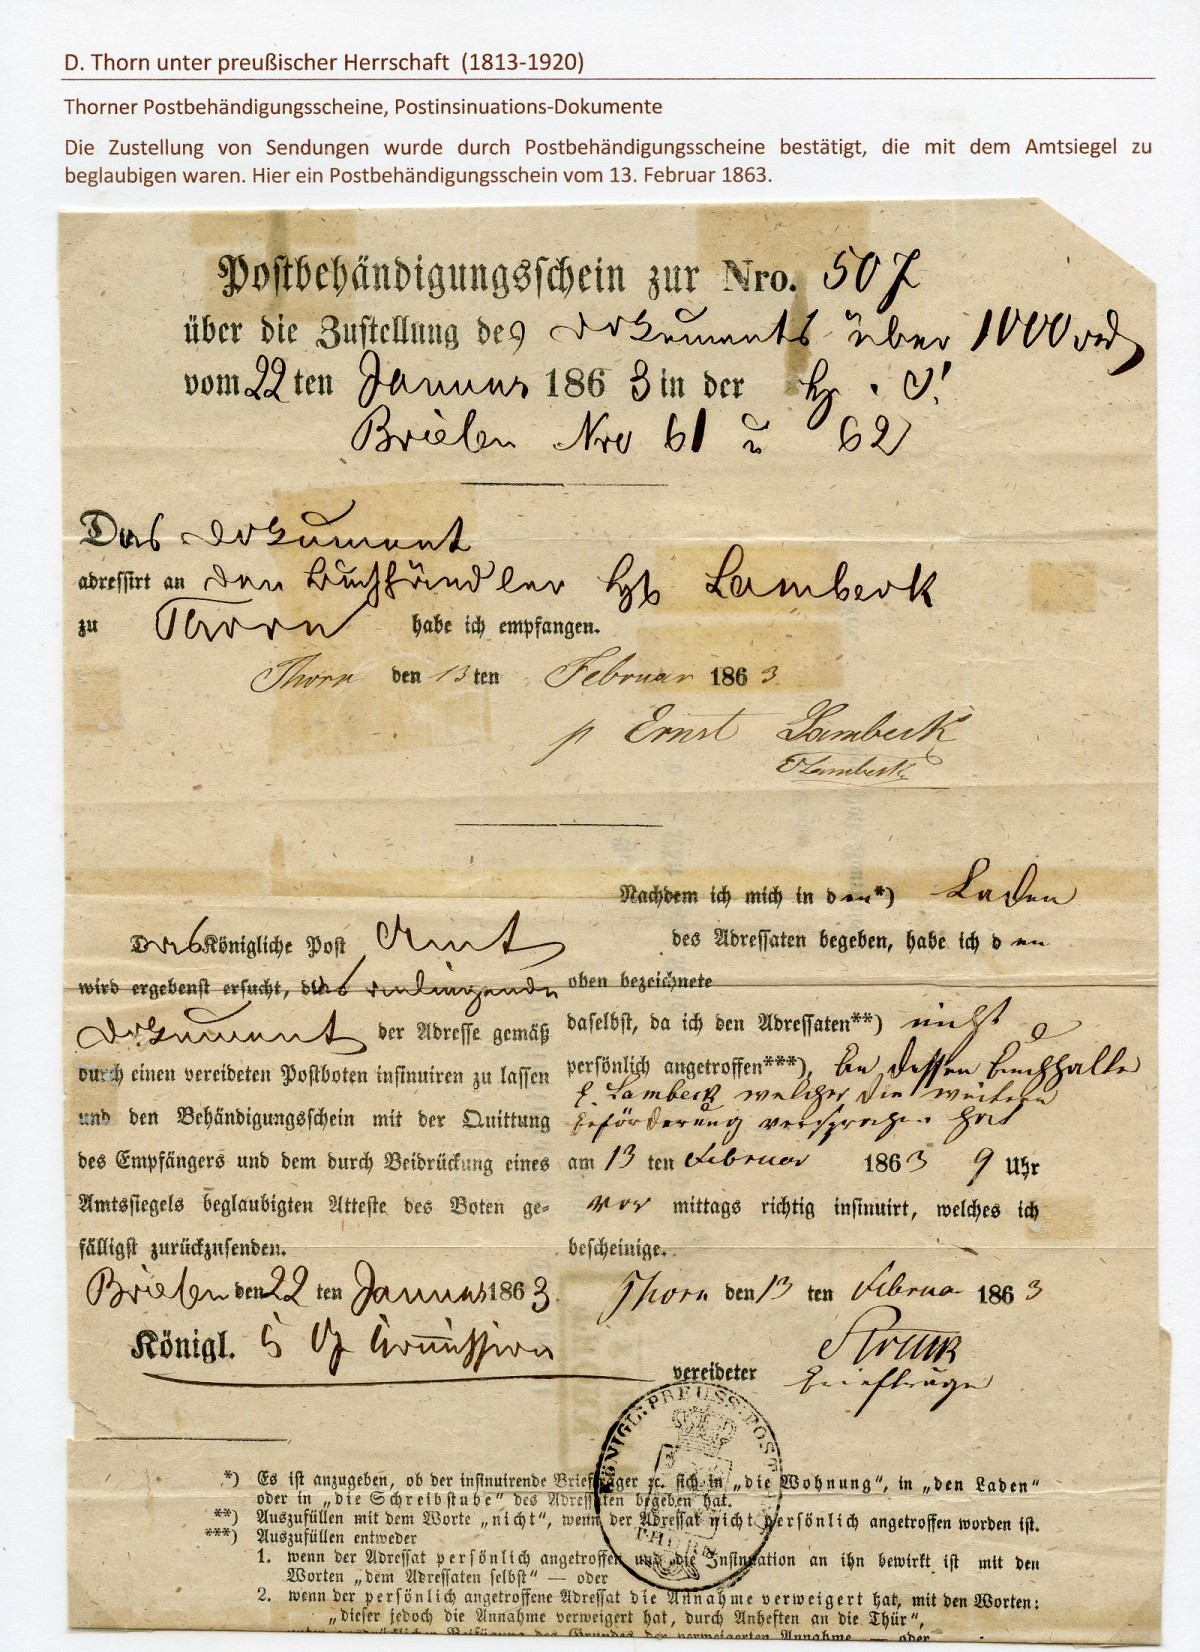 D. Thorn unter preußischer Herrschaft (1813-1920)
Thorner Postbehändigungsscheine, Postinsinuations-Dokumente
Die Zustellung von Sendungen wurde durch Postbehändigungsscheine bestätigt, die mit dem Amtsiegel zu
beglaubigen waren. Hier ein Postbehändigungsschein vom 13. Februar 1863.
Postbehändigungsschein zur Nro. 507
über die Zustellung des Dokuments über 1000
vom 22 ten Januar 1863 in der
Briesen Nro 61 u 62
Das Dokument
adressirt an den Buchhändler Lambeck
zu Thorn habe ich empfangen.
Thorn den 13 ten Februar 1863
p Ernst Lambeck
Lambeck
Nachdem ich mich in den*) Laden
des Adressaten begeben, habe ich den
oben bezeichnete
daselbst, da ich den Adressaten**) nicht
persönlich angetroffen***), an dessen Buchhalter
Lambeck welcher die weitere
Beförderung versprochen hat
am 13 ten Februar 1863 9 Uhr
vor mittags richtig insinuirt, welches ich
bescheinige.
Thorn den 13 ten Februar 1863
vereideter Briefträger
Das Königliche Post Amt
wird ergebenst ersucht, das anliegende
Dokument der Adresse gemäß
durch einen vereideten Postboten insinuiren zu lassen
und den Behändigungsschein mit der Quittung
des Empfängers und dem durch Beidrückung eines
Amtssiegels beglaubigten Atteste des Boten ge-
fälligst zurückzusenden.
Briesen den 22 ten Januar 1863
Königl. Commission
KÖNIGL: PREUSS: POST
THORN
*) Es ist anzugeben, ob der insinuirende Briefträger ꝛc. sich in „die Wohnung“, in „den Laden“
oder in „die Schreibstube“ des Adressaten begeben hat.
**) Auszufüllen mit dem Worte „nicht“, wenn der Adressat nicht persönlich angetroffen worden ist.
***) Auszufüllen entweder
1. wenn der Adressat persönlich angetroffen und die Insinuation an ihn bewirkt ist mit den
Worten „dem Adressaten selbst“ — oder
2. wenn der persönlich angetroffene Adressat die Annahme verweigert hat, mit den Worten:
„dieser jedoch die Annahme verweigert hat, durch Anheften an die Thür“,
unter ausdrücklicher Beifügung des Grundes der verweigerten Annahme — oder